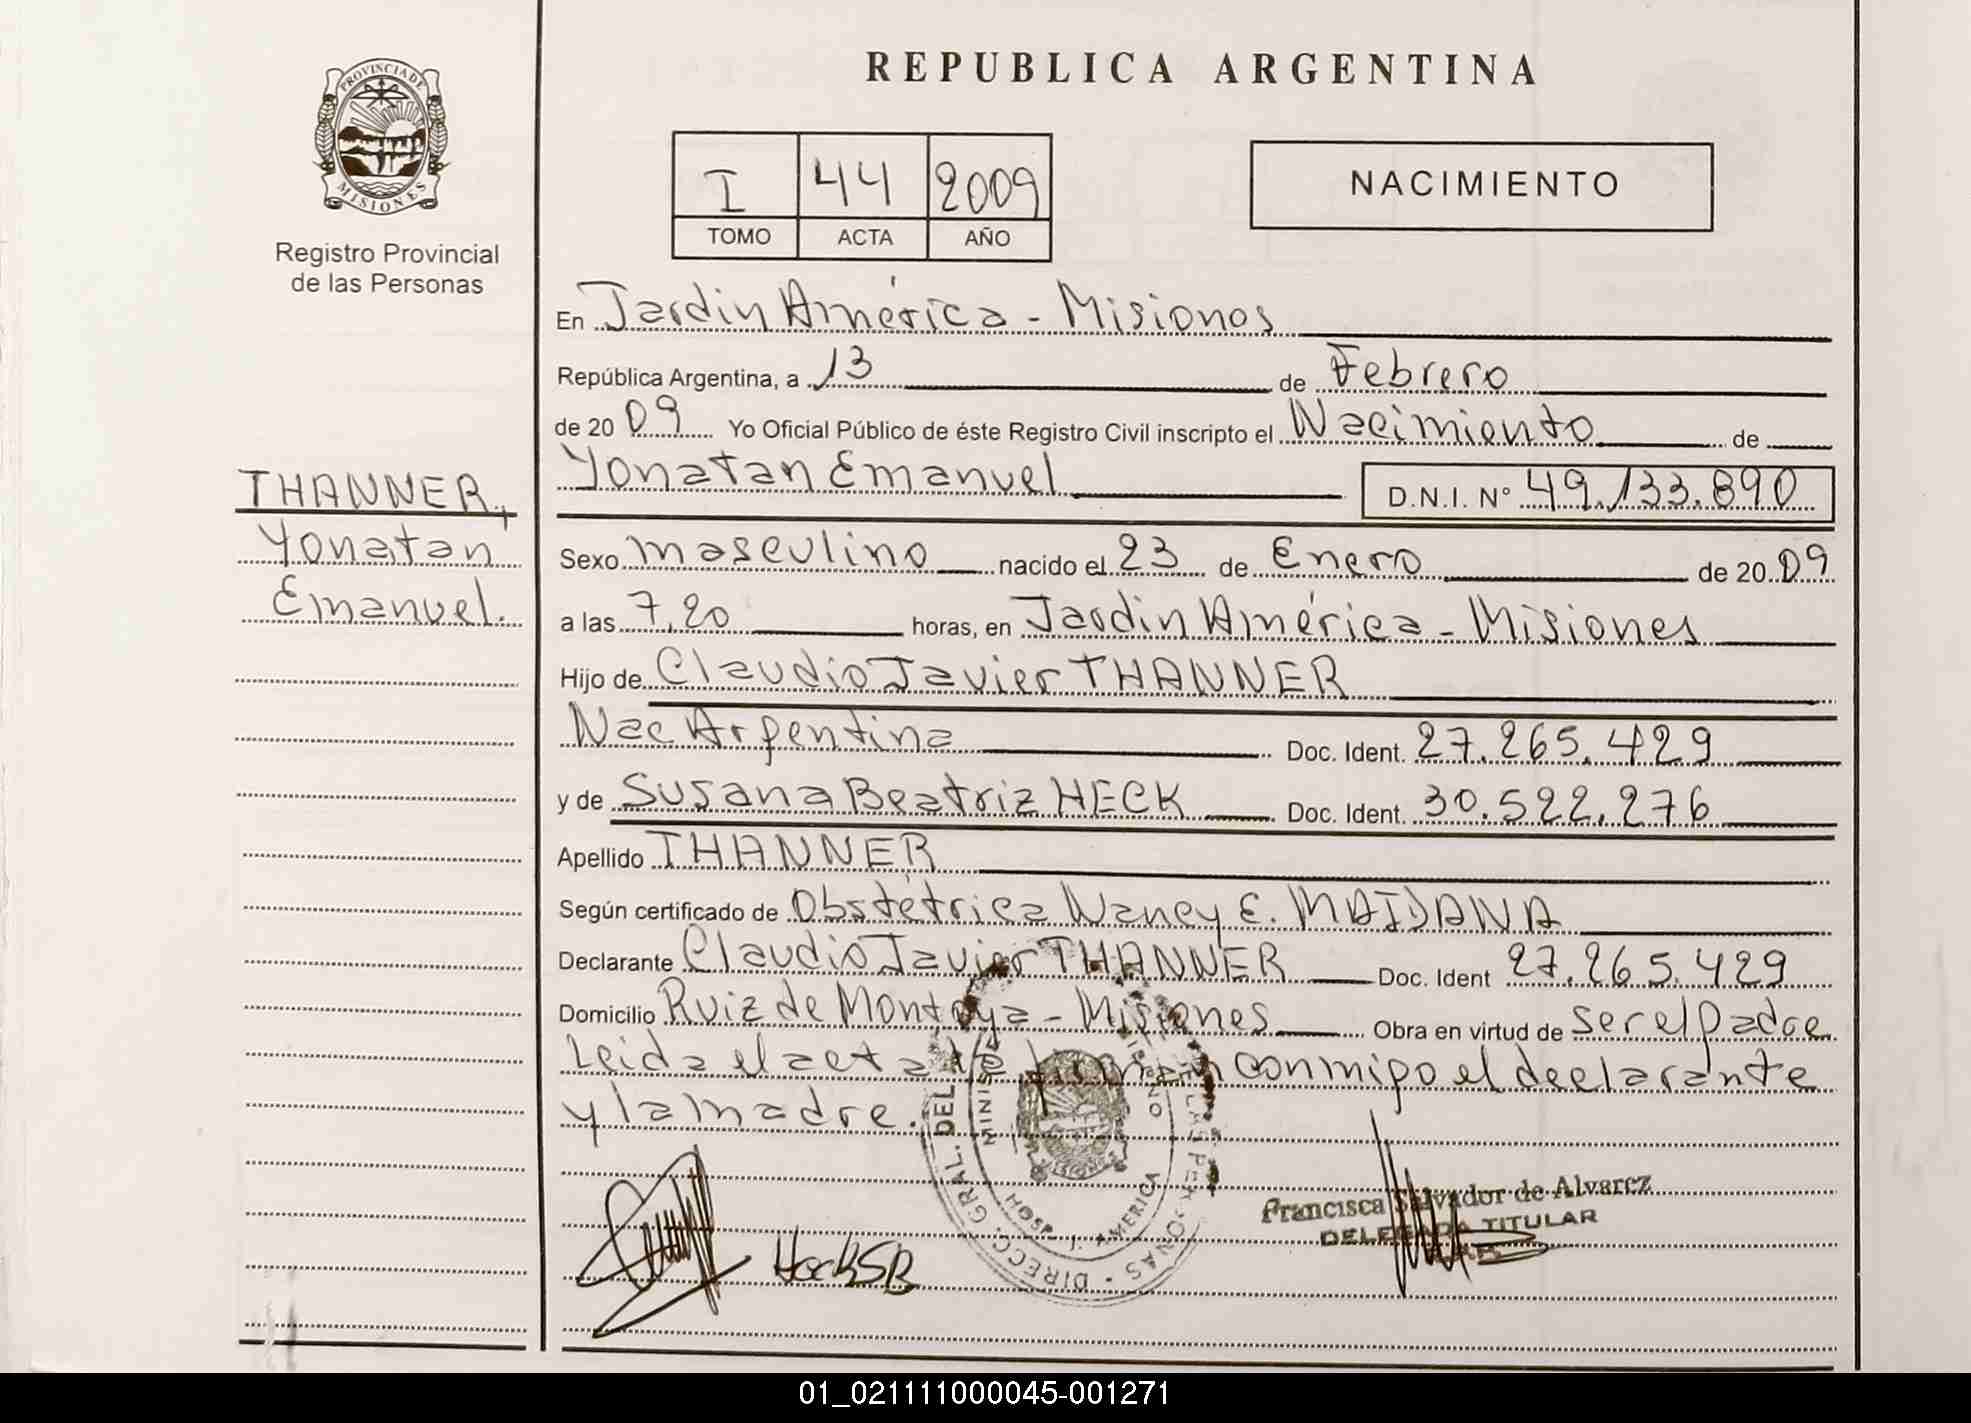 PROVINCIA DE
MISIONES
Registro Provincial
de las Personas
REPUBLICA ARGENTINA
I 44 2009
TOMO ACTA AÑO
NACIMIENTO
En Jardin América - Misiones
República Argentina, a 13 de Febrero
de 20 09 Yo Oficial Público de éste Registro Civil inscripto el Nacimiento de
Yonatan Emanuel D.N.I. Nº 49.133.890
THANNER,
Yonatan
Emanuel.
Sexo masculino nacido el 23 de Enero de 20 09
a las 7,20 horas, en Jardin América - Misiones
Hijo de Claudio Javier THANNER
Nac Argentina Doc. Ident. 27.265.429
y de Susana Beatriz HECK Doc. Ident. 30.522.276
Apellido THANNER
Según certificado de Obstétrica Nancy E. MAIDANA
Declarante Claudio Javier THANNER Doc. Ident 27.265.429
Domicilio Ruiz de Montoya - Misiones Obra en virtud de ser el padre
Leida el acta la firman conmigo el declarante
y la madre.
DIRECC. GRAL. DEL PERSONAS
HOSP. J. AMERICA
MISIONES
Heck SB
Francisca Salvador de Alvarez
DELEGADA TITULAR
01_021111000045-001271